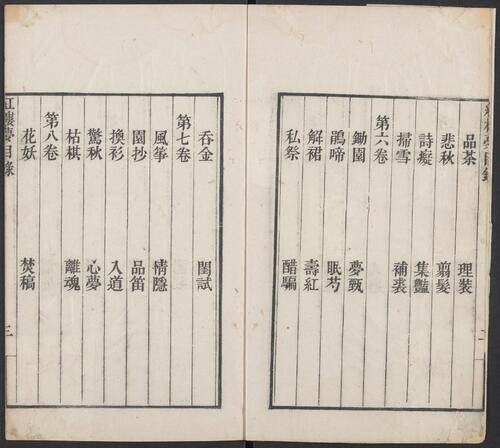 品茶 理裝
悲秋 翦髮
詩癡 集豔
掃雪 補裘
第六卷
鋤園 夢甄
鵑啼 眠芍
解裙 壽紅
私祭 醋騙
吞金 閨試
第七卷
風箏 情隱
園抄 品笛
換衫 入道
驚秋 心夢
枯棋 離魂
第八卷
花妖 焚稿
紅樓夢目錄 三